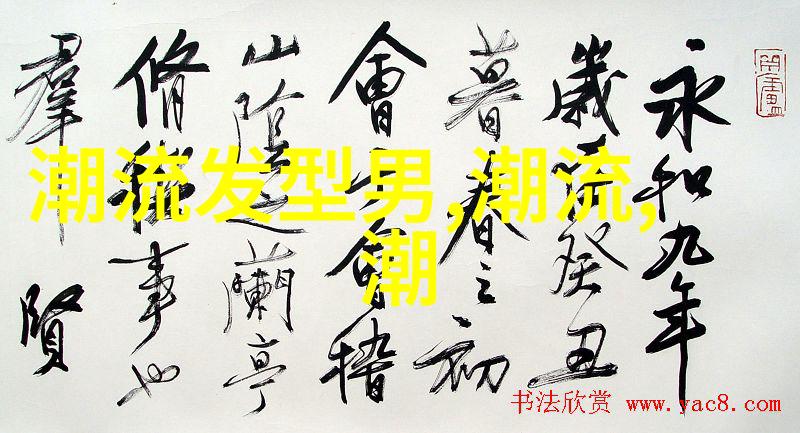 永和九年
歲在癸丑
暮春之初
會于會稽
山陰之蘭亭
脩稧事也
羣賢
潮流发型男,潮流,
潮
书法欣赏 www.yac8.com